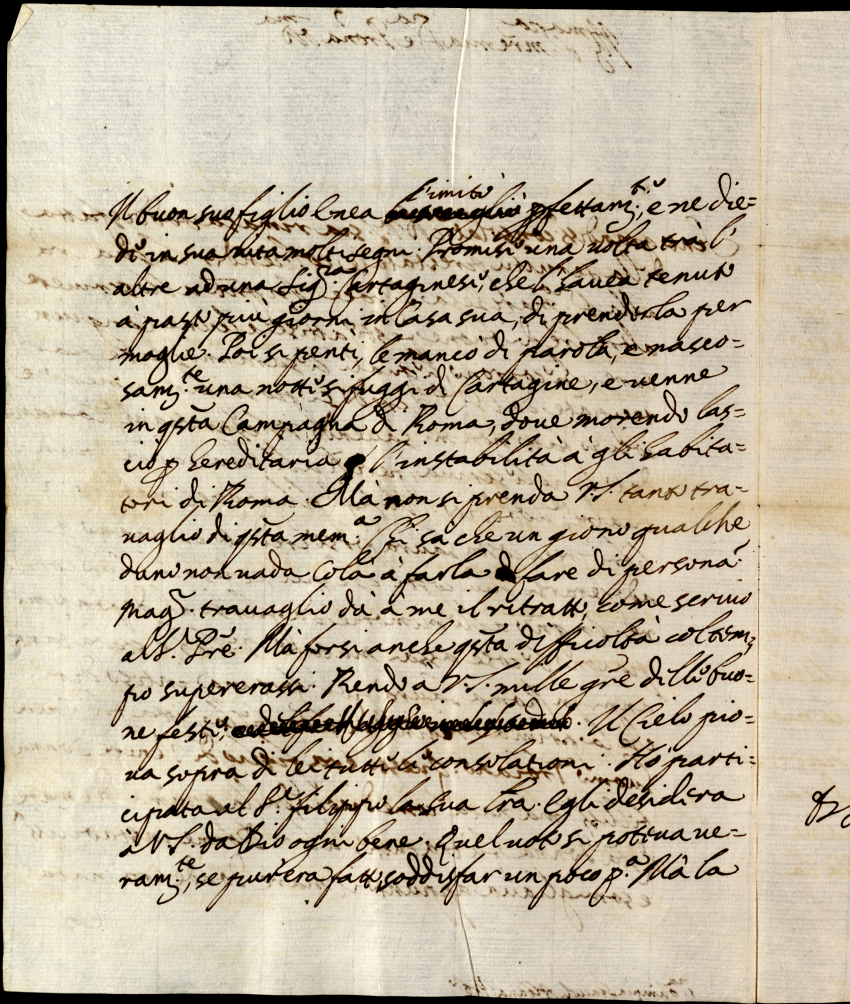 l'imitò
Il buon suo figlio Enea perfettam.te, e ne die=
de in sua vita molti segni. Promise una volta trà l'
altre ad una Sig.ra Cartaginese, che l'havea tenuto
à pasto più giorni in Casa sua, di prenderla per
moglie. Poi si pentì, le mancò di parola, e nasco=
sam.te una notte si fuggì di Cartagine, e venne
in qsta Campagna di Roma, dove morendo las=
ciò p hereditaria l'instabilità à gli habita=
tori di Roma. Mà non si prenda V.S. tanto tra=
vaglio di qsta mem.a Chi sa che un giorno qualche
dano non vada colà à farla fare di persona.
Mag.r travaglio dà à me il ritratto, come scrivo
al S.r Pre. Mà forsi anche qsta difficoltà col tem=
po supererassi. Rendo à V.S. mille gre delle buo=
ne feste. Il Cielo pio=
va sopra di lei tutte le consolationi. Hò parti=
cipata al S.r Filippo la sua lra. Egli desidera
à V.S. da Dio ogni bene. Quel voto si poteva ve=
ram.te, se pur era fatto, soddisfar un poco p.a Mà la